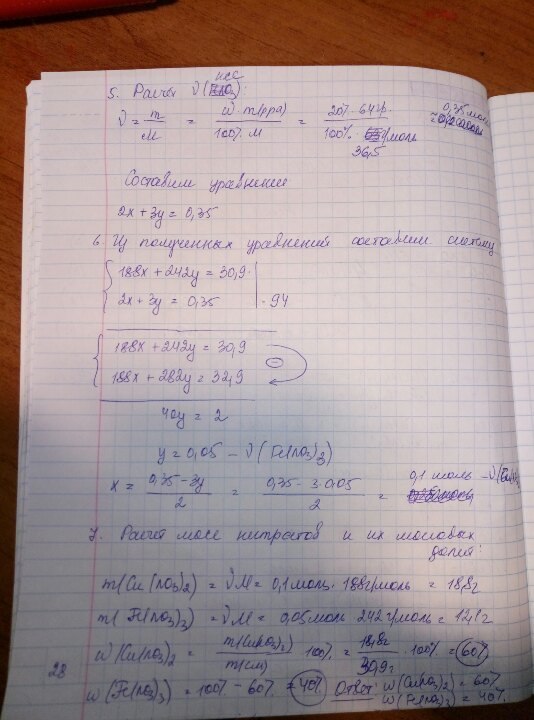 5. Расчёт ν(HCl):
ν = m/M = w·m(рра)/100%·M = 20%·64г/100%·36,5г/моль = 0,35 моль
Составим уравнение
2x + 3y = 0,35
6. Из полученных уравнений составим систему
188x + 242y = 30,9
2x + 3y = 0,35 | ·94
188x + 242y = 30,9
188x + 282y = 32,9
40y = 2
y = 0,05 – ν(Fe(NO3)3)
x = 0,35-3y/2 = 0,35-3·0,05/2 = 0,1 моль – ν(Cu(NO3)2
7. Расчёт масс нитратов и их массовых
долей:
m(Cu(NO3)2) = νM = 0,1моль·188г/моль = 18,8г
m(Fe(NO3)3) = νM = 0,05моль·242г/моль = 12,1г
w(Cu(NO3)2 = m(Cu(NO3)2)/m(см) ·100% = 18,8г/30,9г ·100% = 60%
w(Fe(NO3)3) = 100% - 60% = 40% Ответ: w(Cu(NO3)2) = 60%
w(Fe(NO3)3) = 40%
28